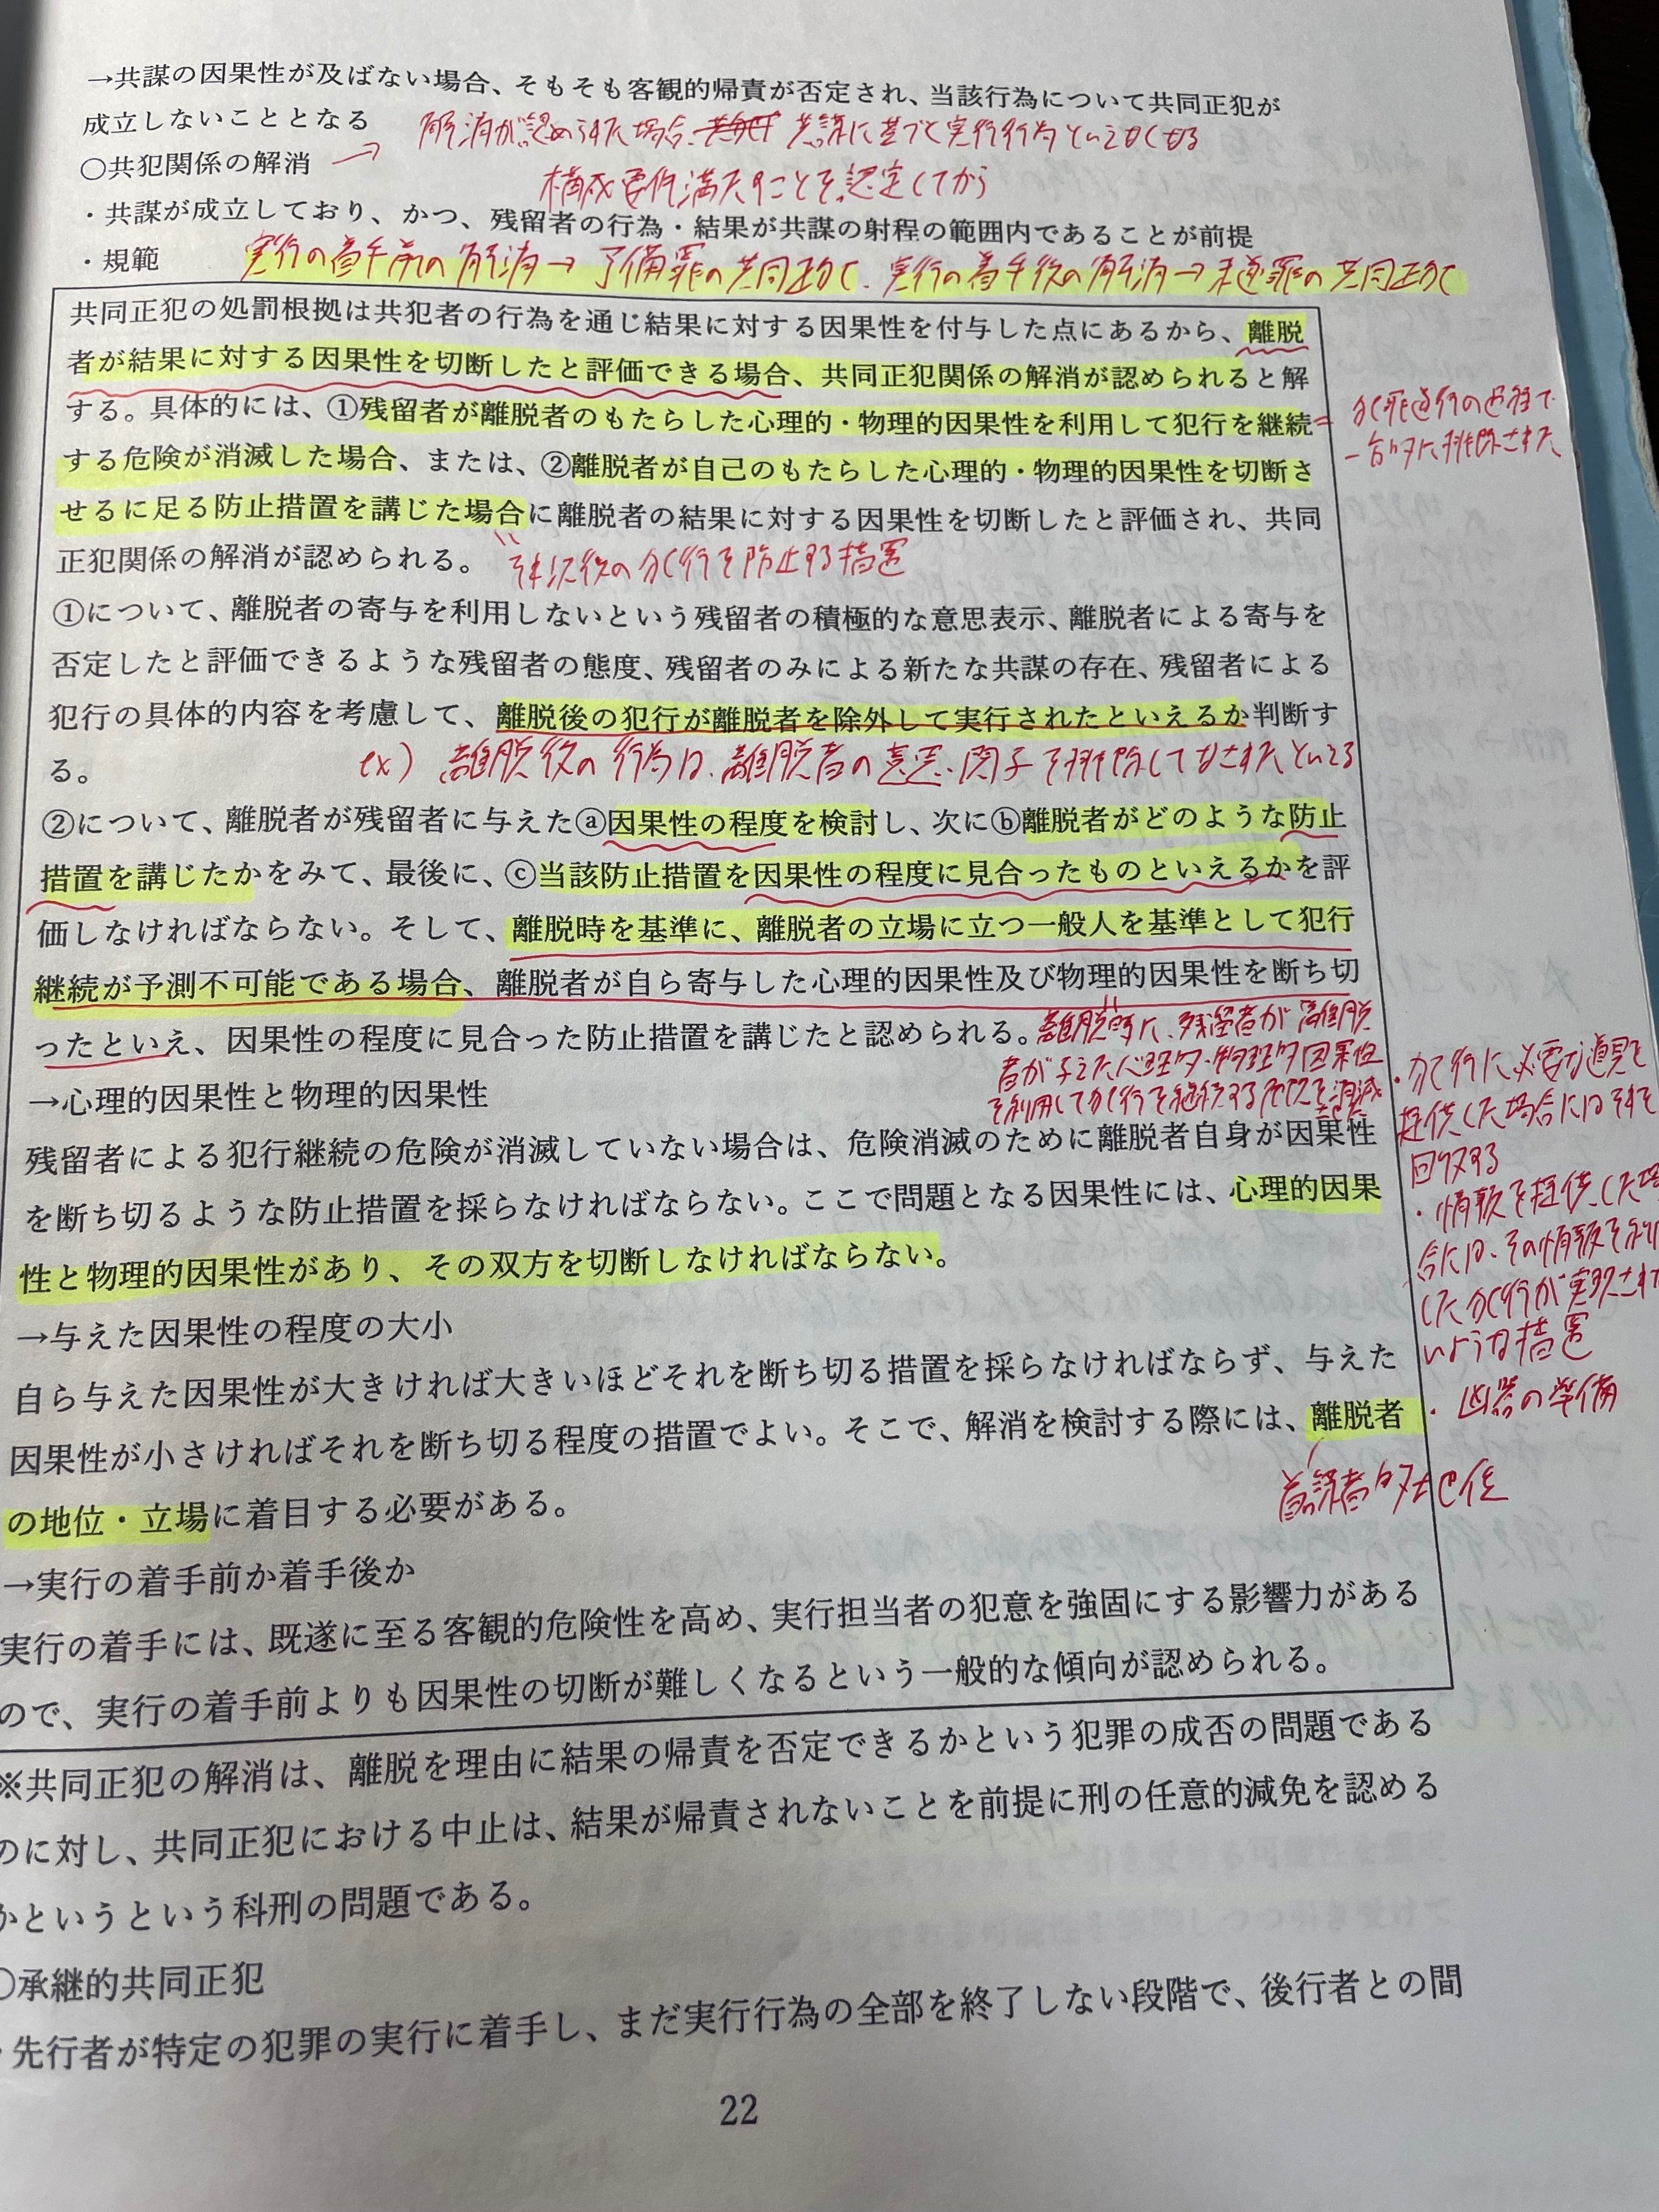 →共謀の因果性が及ばない場合、そもそも客観的帰責が否定され、当該行為について共同正犯が
成立しないこととなる
解消が認められた場合、共謀に基づく実行行為といえなくなる
○共犯関係の解消 →
構成要件満たすことを認定してから
・共謀が成立しており、かつ、残留者の行為・結果が共謀の射程の範囲内であることが前提
・規範
実行の着手前の解消→予備罪の共同正犯、実行の着手後の解消→未遂罪の共同正犯
共同正犯の処罰根拠は共犯者の行為を通じ結果に対する因果性を付与した点にあるから、離脱
者が結果に対する因果性を切断したと評価できる場合、共同正犯関係の解消が認められると解
する。具体的には、①残留者が離脱者のもたらした心理的・物理的因果性を利用して犯行を継続
= 犯罪遂行の過程で
一合的に排除された
する危険が消滅した場合、または、②離脱者が自己のもたらした心理的・物理的因果性を切断さ
せるに足る防止措置を講じた場合に離脱者の結果に対する因果性を切断したと評価され、共同
正犯関係の解消が認められる。
それ以後の犯行を防止する措置
①について、離脱者の寄与を利用しないという残留者の積極的な意思表示、離脱者による寄与を
否定したと評価できるような残留者の態度、残留者のみによる新たな共謀の存在、残留者による
犯行の具体的内容を考慮して、離脱後の犯行が離脱者を除外して実行されたといえるか判断す
る。
ex) 離脱後の行為は、離脱者の意思・関与を排除してなされたといえる
②について、離脱者が残留者に与えたⓐ因果性の程度を検討し、次にⓑ離脱者がどのような防止
措置を講じたかをみて、最後に、ⓒ当該防止措置を因果性の程度に見合ったものといえるかを評
価しなければならない。そして、離脱時を基準に、離脱者の立場に立つ一般人を基準として犯行
継続が予測不可能である場合、離脱者が自ら寄与した心理的因果性及び物理的因果性を断ち切
ったといえ、因果性の程度に見合った防止措置を講じたと認められる。
離脱時に、残留者が離脱
者が与えた心理的・物理的因果性
を利用して犯行を継続する危険を消滅
→心理的因果性と物理的因果性
残留者による犯行継続の危険が消滅していない場合は、危険消滅のために離脱者自身が因果性
を断ち切るような防止措置を採らなければならない。ここで問題となる因果性には、心理的因果
性と物理的因果性があり、その双方を切断しなければならない。
・犯行に必要な道具を
提供した場合にはそれを
回収する
・情報を提供した場
合には、その情報を利用
した犯行が実現され
いような措置
・凶器の準備
→与えた因果性の程度の大小
自ら与えた因果性が大きければ大きいほどそれを断ち切る措置を採らなければならず、与えた
因果性が小さければそれを断ち切る程度の措置でよい。そこで、解消を検討する際には、離脱者
の地位・立場に着目する必要がある。
首謀者的地位
→実行の着手前か着手後か
実行の着手には、既遂に至る客観的危険性を高め、実行担当者の犯意を強固にする影響力がある
ので、実行の着手前よりも因果性の切断が難しくなるという一般的な傾向が認められる。
※共同正犯の解消は、離脱を理由に結果の帰責を否定できるかという犯罪の成否の問題である
のに対し、共同正犯における中止は、結果が帰責されないことを前提に刑の任意的減免を認める
かというという科刑の問題である。
○承継的共同正犯
・先行者が特定の犯罪の実行に着手し、まだ実行行為の全部を終了しない段階で、後行者との間
22